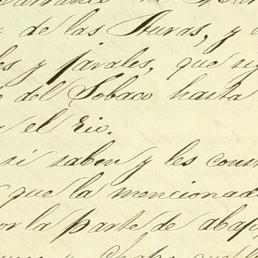 de las Auras, y
y parales, que
del Sobaco hasta
el Rio.
si saben y les cons
que la mencionada
or la parte de abajo